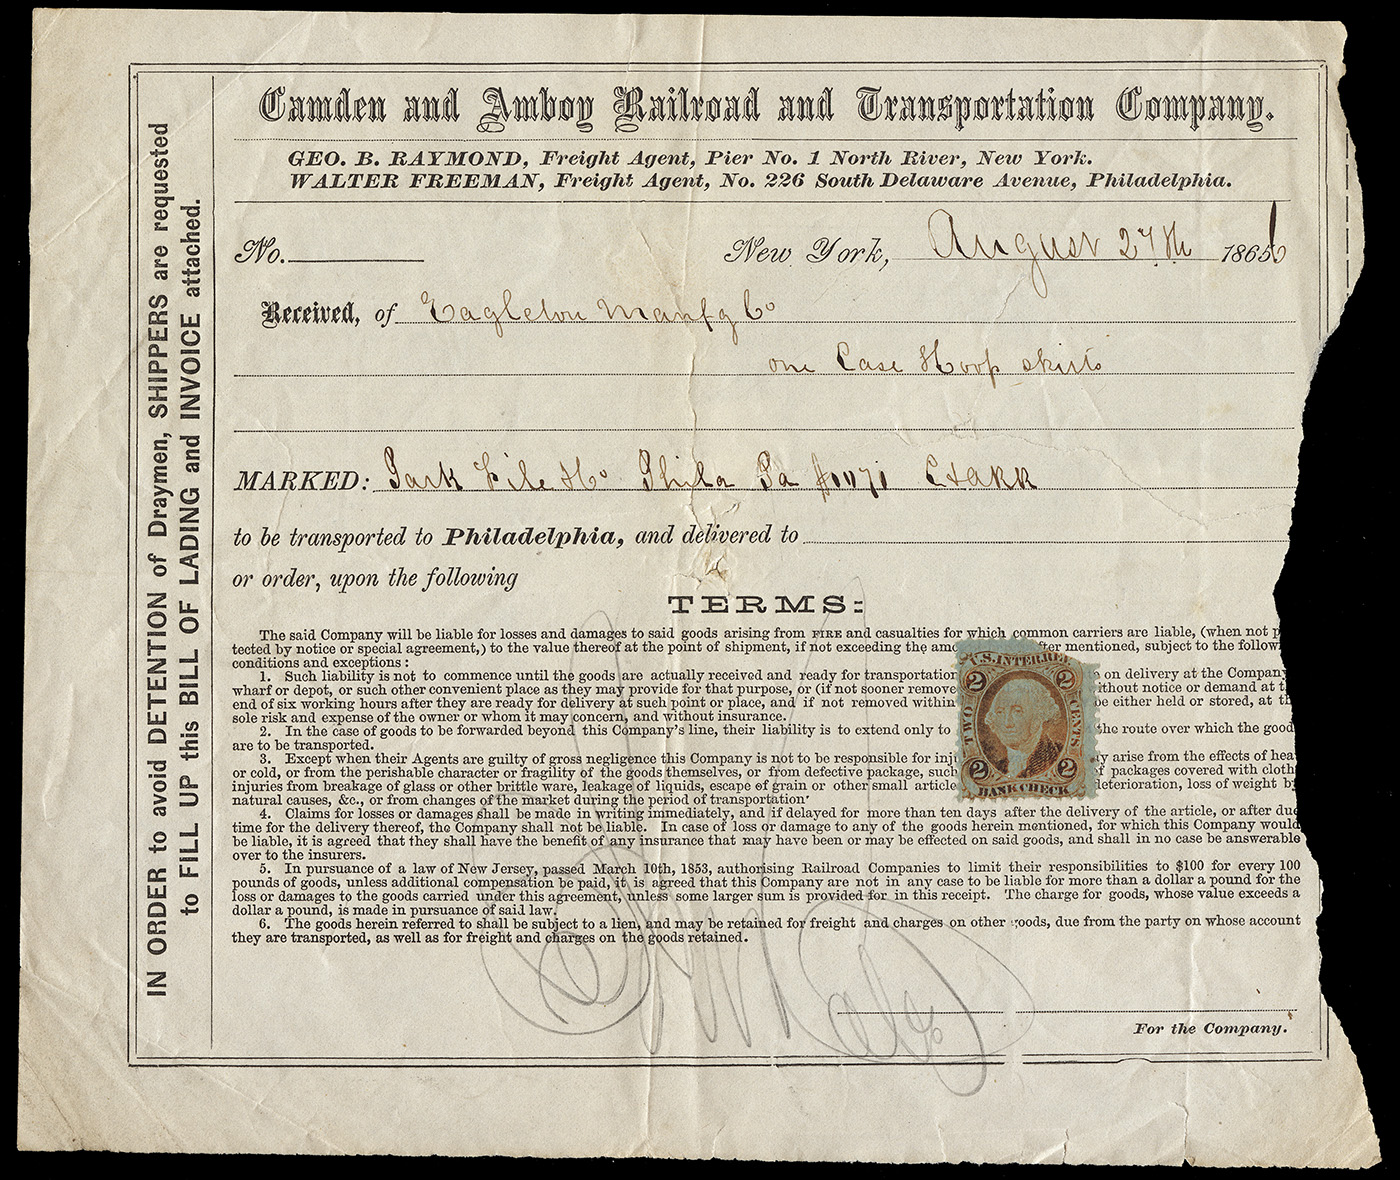 IN ORDER to avoid DETENTION of Draymen, SHIPPERS are requested
to FILL UP this BILL OF LADING and INVOICE attached.
Camden and Amboy Railroad and Transportation Company.
GEO. B. RAYMOND, Freight Agent, Pier No. 1 North River, New York.
WALTER FREEMAN, Freight Agent, No. 226 South Delaware Avenue, Philadelphia.
No. New York, August 27th 186
Received, of Eagleton Manfg Co
one Case Hoop skirts
MARKED: Phila Pa
to be transported to Philadelphia, and delivered to
or order, upon the following
TERMS:
The said Company will be liable for losses and damages to said goods arising from FIRE and casualties for which common carriers are liable, (when not p
tected by notice or special agreement,) to the value thereof at the point of shipment, if not exceeding the amo fter mentioned, subject to the follow
conditions and exceptions:
1. Such liability is not to commence until the goods are actually received and ready for transportation on delivery at the Company
wharf or depot, or such other convenient place as they may provide for that purpose, or (if not sooner remove ithout notice or demand at t
end of six working hours after they are ready for delivery at such point or place, and if not removed within be either held or stored, at th
sole risk and expense of the owner or whom it may concern, and without insurance.
2. In the case of goods to be forwarded beyond this Company's line, their liability is to extend only to the route over which the good
are to be transported.
3. Except when their Agents are guilty of gross negligence this Company is not to be responsible for inj ty arise from the effects of hea
or cold, or from the perishable character or fragility of the goods themselves, or from defective package, such f packages covered with cloth
injuries from breakage of glass or other brittle ware, leakage of liquids, escape of grain or other small article deterioration, loss of weight by
natural causes, &c., or from changes of the market during the period of transportation'
4. Claims for losses or damages shall be made in writing immediately, and if delayed for more than ten days after the delivery of the article, or after due
time for the delivery thereof, the Company shall not be liable. In case of loss or damage to any of the goods herein mentioned, for which this Company would
be liable, it is agreed that they shall have the benefit of any insurance that may have been or may be effected on said goods, and shall in no case be answerable
over to the insurers.
5. In pursuance of a law of New Jersey, passed March 10th, 1853, authorising Railroad Companies to limit their responsibilities to $100 for every 100
pounds of goods, unless additional compensation be paid, it is agreed that this Company are not in any case to be liable for more than a dollar a pound for the
loss or damages to the goods carried under this agreement, unless some larger sum is provided for in this receipt. The charge for goods, whose value exceeds a
dollar a pound, is made in pursuance of said law.
6. The goods herein referred to shall be subject to a lien, and may be retained for freight and charges on other goods, due from the party on whose account
they are transported, as well as for freight and charges on the goods retained.
U.S. INTER. REV.
2 2
TWO CENTS
2 2
BANK CHECK
For the Company.